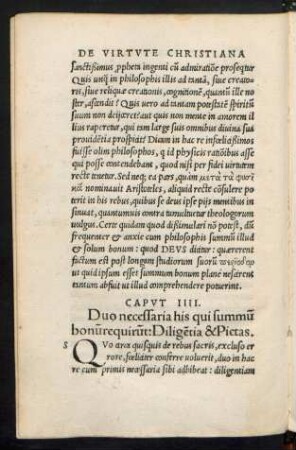 DE VIRTVTE CHRISTIANA
sanctissimus ꝓpheta ingenti cū admiratiōe prosequit̃
Quis unq̃ in philosophis illis ad tantā, siue creato-
ris, siue reliquæ creationis, cognitionē, quantū ille no
ster, ascendit? Quis uero ad tantam potestatē spiritū
suum non deijceret? aut quis non mente in amorem il
lius raperetur, qui tam large suis omnibus diuina sui
prouidētia prospicit? Diem in hac re infœlicissimos
fuisse olim philosophos, q̃ id physicis ratiōibus asse
qui posse contendebant, quod nisi per fidei uirtutem
recte tenetur. Sed neq; ea pars, quàm μετὰ τὰ φυσι
κὰ nominauit Aristoteles, aliquid recte cōsulere pote
rit in his rebus, quibus se deus ipse pijs mentibus in
sinuat, quantumuis contra tumultuetur theologorum
uulgus. Certe quidam quod dissimulari nō potest, dū
frequenter & anxie cum philosophis summū illud
& solum bonum: quod DEVS dicitur: quærerent
factum est post longum studiorum suorū
ut quid ipsum esset summum bonum plane nescirent
tantum abfuit ut illud comprehendere potuerint.
CAPVT IIII.
Duo necessaria his qui summū
bonū requirūt: Diligētia & Pietas.
S QVo circa quisquis de rebus sacris, excluso er
rore, fœliciter conserre uoluerit, duo in hac
re cum primis necessaria sibi adhibeat: diligentiam